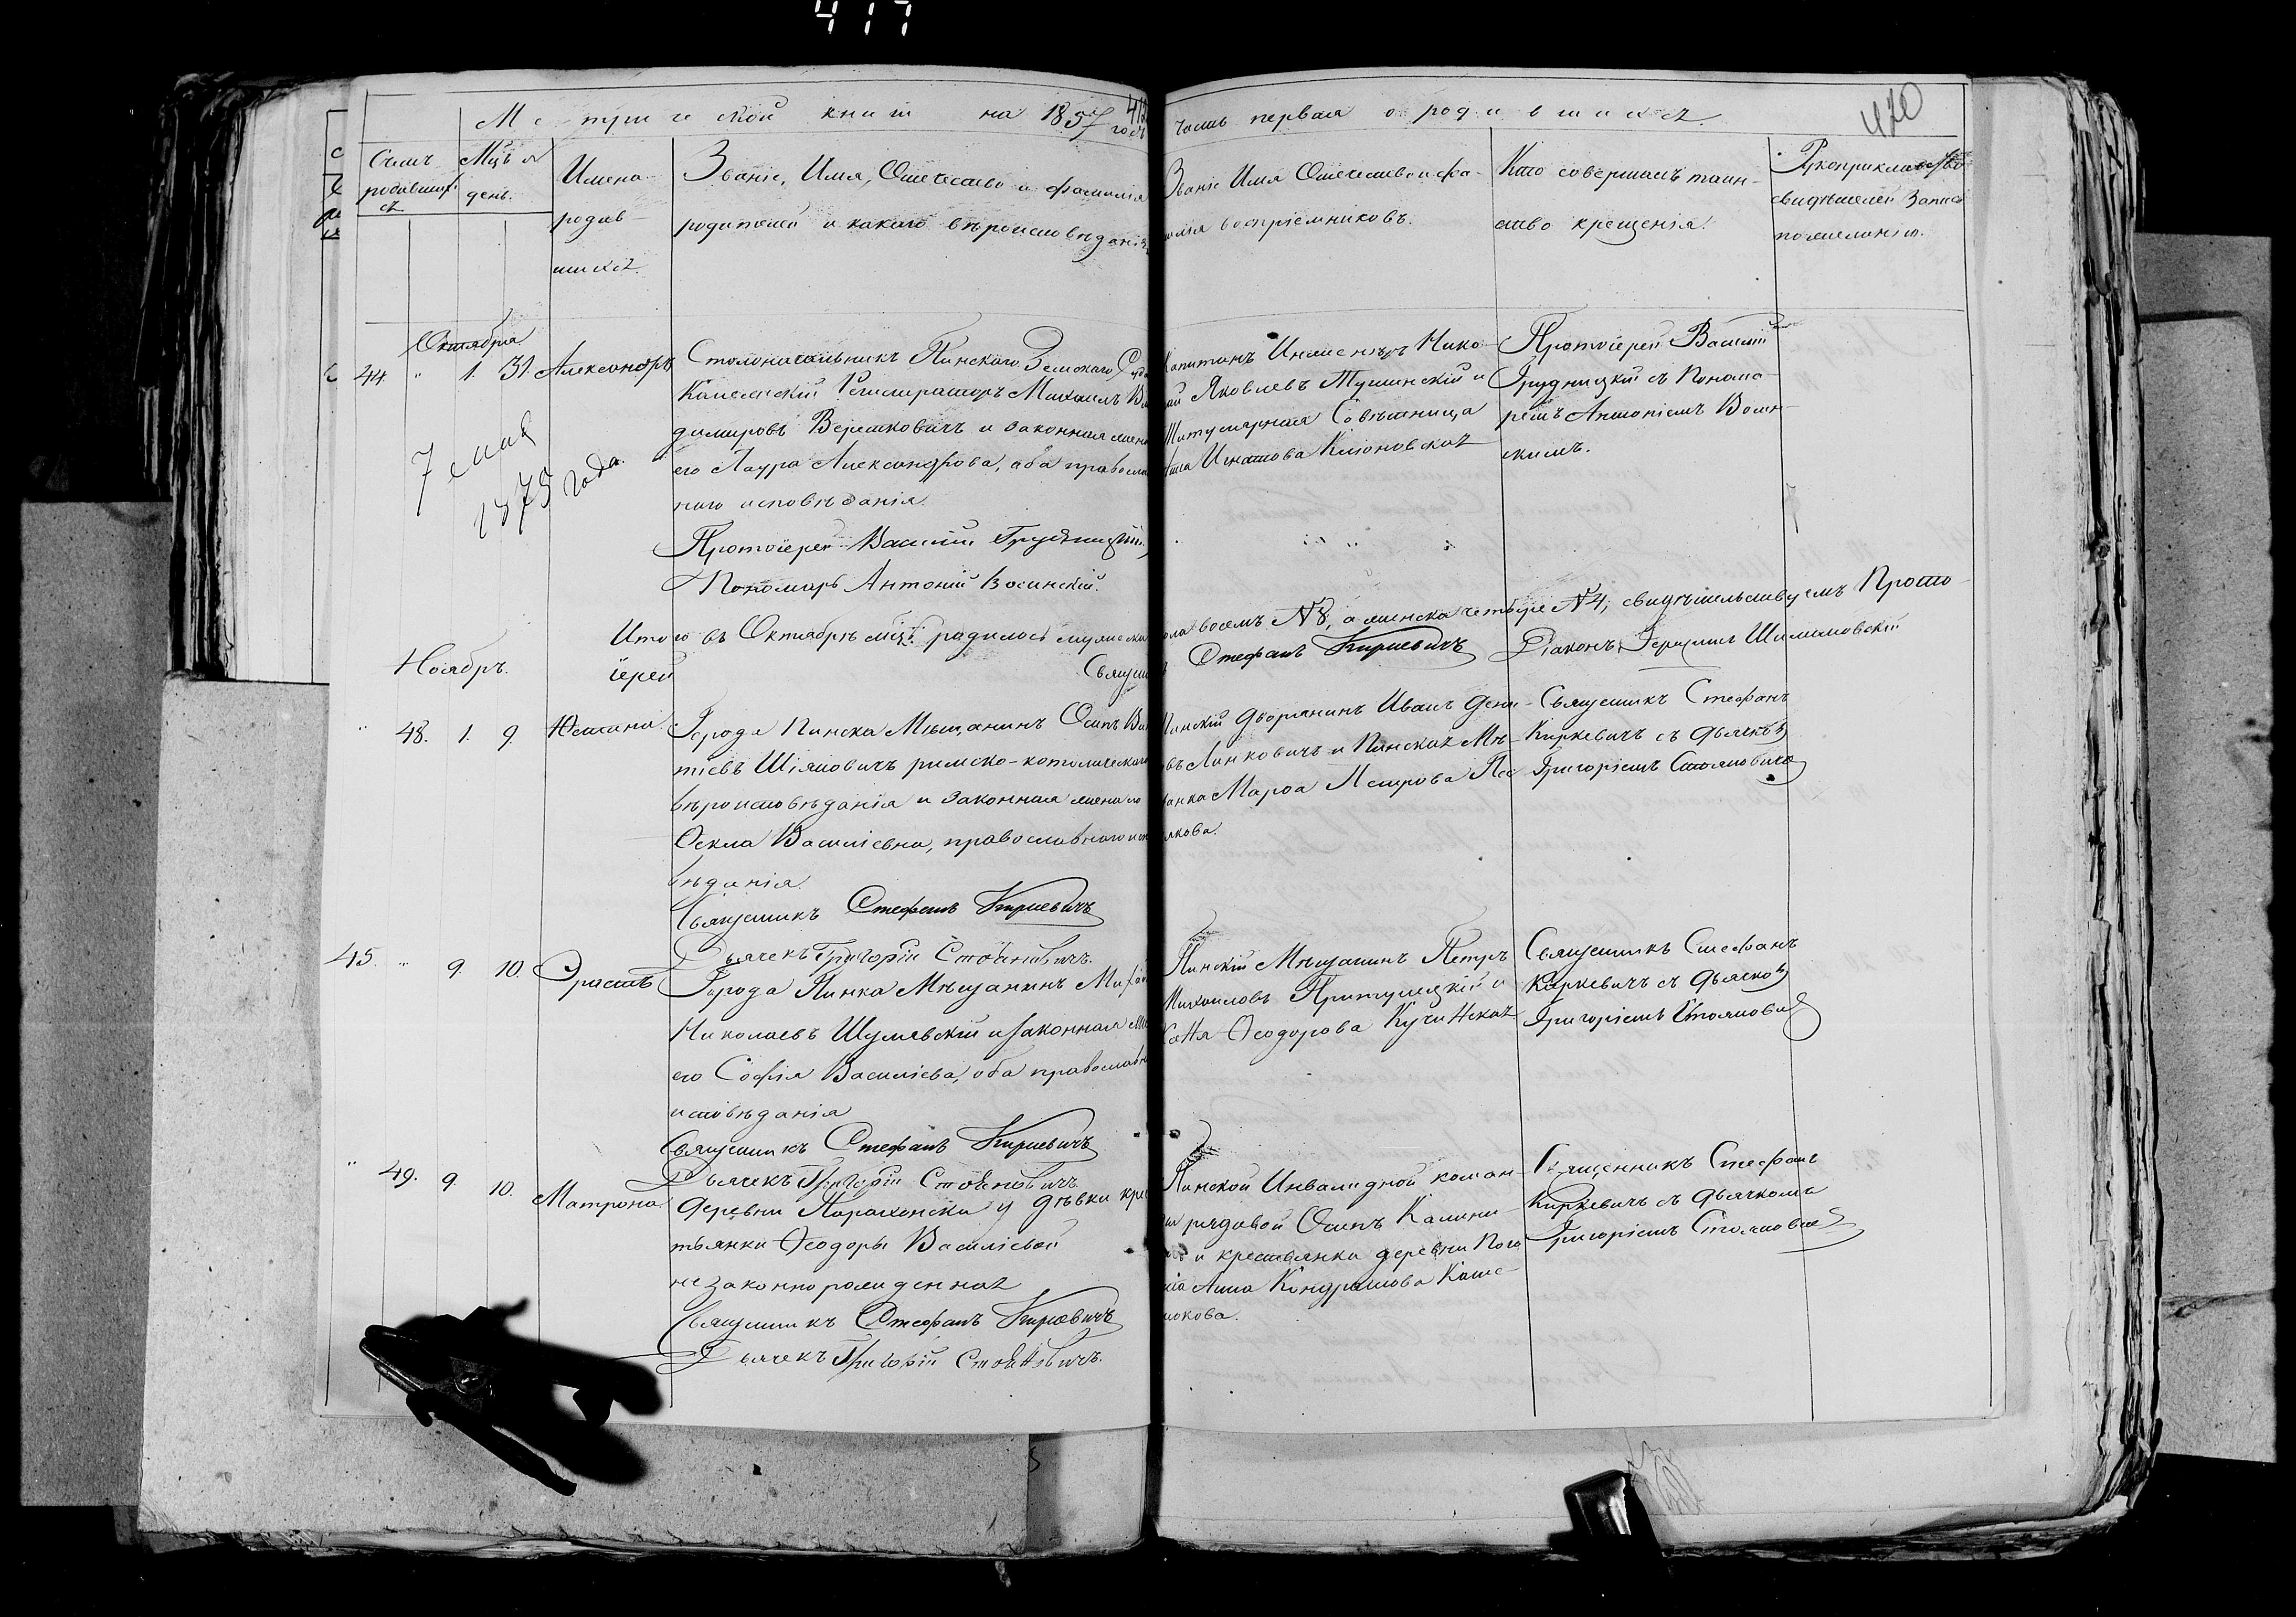 417
Метрической книги на 1857 годъ часть первая о родившихся.
420
Счетъ родившихся
Мцъ и день.
Имена родившихся
Званіе, Имя, Отечество и фамилія
родителей и какого вѣроисповѣданія
Званіе Имя Отечество и фа-
милія воспріемниковъ.
Кто совершалъ таин-
ство крещенія.
Рукоприкладство
свидѣтелей записи
по желанію.
Октября
44. " 1. 31. Александръ
Столоначальникъ Пинскаго Земскаго Суда
Коллежскій Регистраторъ Михаилъ Вла
димировъ Верешковичъ и законная жена
его Лаура Александрова, оба православ
наго исповѣданія
Протоіерей Василій Грудницкій
Пономарь Антоній Волинскій.
Капитанъ Инженеръ Нико
лай Яковлевъ Тушинскій и
Титулярная Совѣтница
Игнатова Кліоновская
Протоіерей Василій
Грудницкій съ Понома-
ремъ Антоніемъ Волин-
скимъ.
7 мая
1875 года.
Итого въ Октябрѣ мцѣ родилось мужеска пола восемъ №8, а женска четыре №4, свидѣтельствуемъ Прото
іерей Священникъ Стефанъ Киркевичъ Діаконъ Герасимъ Шимановскій
Ноябрь.
" 48. 1. 9. Юстина
Города Пинска Мѣщанинъ Осипъ Викен
тіевъ Шіяновичъ римско-католическаго
вѣроисповѣданія и законная жена его
Ѳекла Василіевна, православнаго испо
вѣданія
Священникъ Стефанъ Киркевичъ
Дьячекъ Григорій Стояновичъ.
Пинскій дворянинъ Иванъ Дени-
въ Линковичъ и Пинская Мѣ-
щанка Марѳа Петрова Пес
якова.
Священникъ Стефанъ
Киркевичъ съ дьячкомъ
Григоріемъ Стояновичемъ
45. " 9. 10. Эрастъ
Города Пинка Мѣщанинъ Михаилъ
Николаевъ Шумевскій и законная жена
его Софія Василіева, оба православнаго
исповѣданія
Священникъ Стефанъ Киркевичъ
Дьячекъ Григорій Стояновичъ
Пинскій Мѣщанинъ Петръ
Михаиловъ Притулецкій и
Ѳеодорова Кучинская
Священникъ Стефанъ
Киркевичъ съ дьячкомъ
Григоріемъ Стояновичемъ
" 49. 9. 10. Матрона
Деревни Парахонска у дѣвки крес
тьянки Ѳеодоры Василіевой
незаконнорожденная
Священникъ Стефанъ Киркевичъ
Дьячекъ Григорій Стояновичъ.
Пинской Инвалидной коман-
ды рядовой Осипъ Калини
и крестьянка деревни Пого
Анна Кондратова Каше-
люкова.
Священникъ Стефанъ
Киркевичъ съ дьячкомъ
Григоріемъ Стояновичемъ